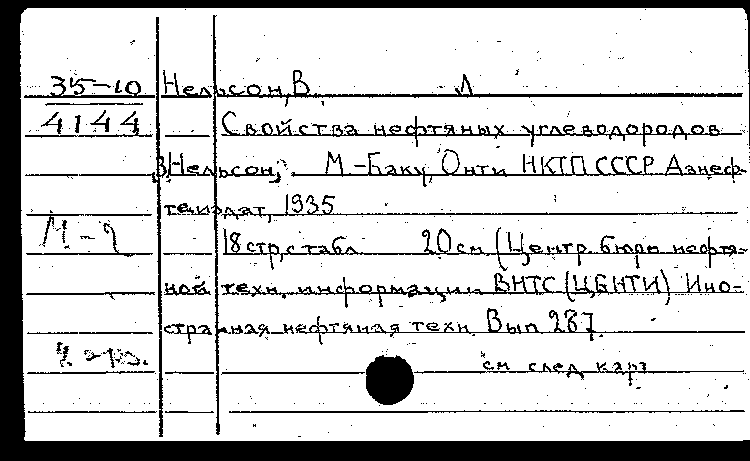 35-10 Нельсон, В. Л
4144 Свойства нефтяных углеводородов
В. Нельсон, . М.-Баку, Онти НКТП СССР Азнеф-
теиздат, 1935
М-2 18 стр, с табл. 20 см (Центр. бюро нефтя-
ной техн. информации ВНТС (ЦБНТИ) Ино-
странная нефтяная техн. Вып 287.
см след карт